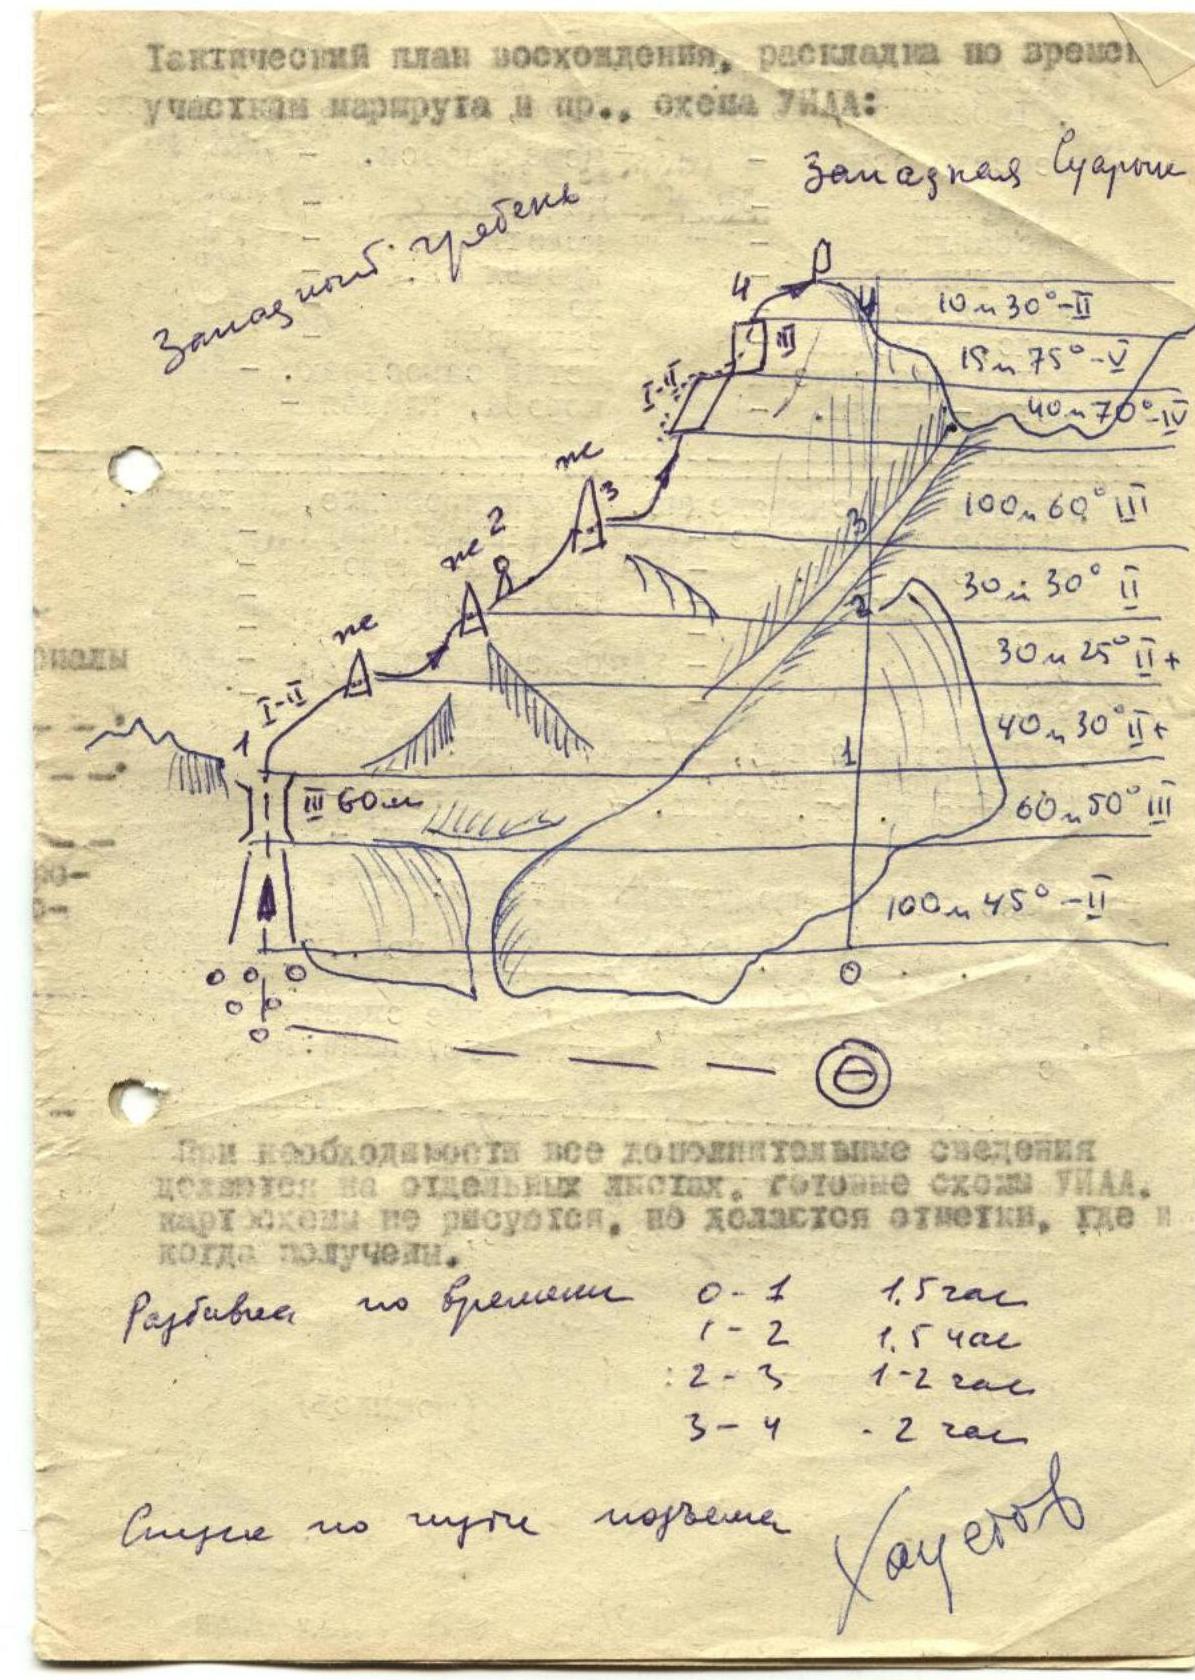 Тактический план восхождения, раскладка по времен
участкам маршрута и пр., схема УИАА:
Западная Суарык
Западный гребень
4
10м 30°-II
III
15м 75°-V
I-II
40м 70°-IV
ж
3
100м 60° III
3
ж 2
30м 30° II
2
ж
30м 25° II+
I-II
40м 30° II+
1
1
III 60м
60м 50° III
100м 45°-II
0
риалы
При необходимости все дополнительные сведения
делаются на отдельных листах. готовые схемы УИАА,
карт схемы не рисуются, но делаются отметки, где и
когда получены.
Разбивка по времени 0-1 1,5 час
1-2 1,5 час
2-3 1-2 час
3-4 2 час
Спуск по пути подъема
Хаустов